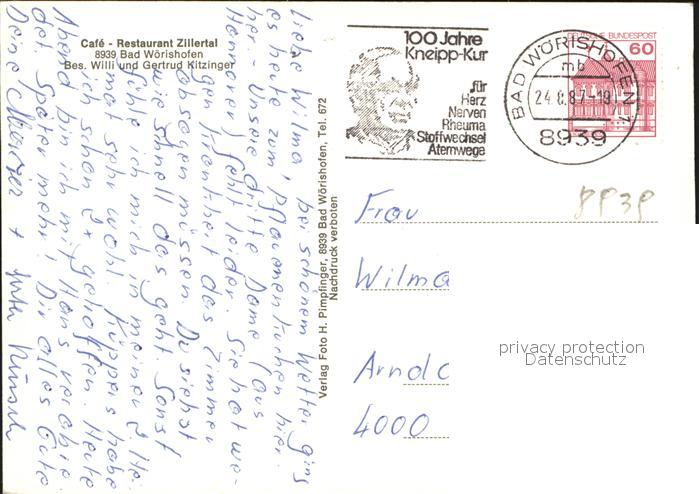 Café - Restaurant Zillertal
8939 Bad Wörishofen
Bes. Willi und Gertrud Kitzinger
Liebe Wilma, bei schönem Wetter ging
es heute zum Pflaumenkuchen hier-
her. Unsere dritte Dame (aus
Hannover) fehlt leider. Sie hat we-
gen Krankheit das Zimmer
absagen müssen. Du siehst
wie schnell das geht. Sonst
fühle ich mich in meiner 2. Hei-
mat sehr wohl. Küppers habe
ich schon 2x getroffen. Heute
Abend bin ich mit Hans verabre-
det. Später mehr! Dir alles Gute
Deine
Verlag Foto H. Pimpfinger, 8939 Bad Wörishofen, Tel. 672
Nachdruck verboten
100 Jahre
Kneipp-Kur
für
Herz
Nerven
Rheuma
Stoffwechsel
Atemwege
BAD WÖRISHOFEN 1
mb
24.8.87-19
8939
DEUTSCHE BUNDESPOST
60
8939
Frau
Wilma
Arnold
4000
privacy protection
Datenschutz